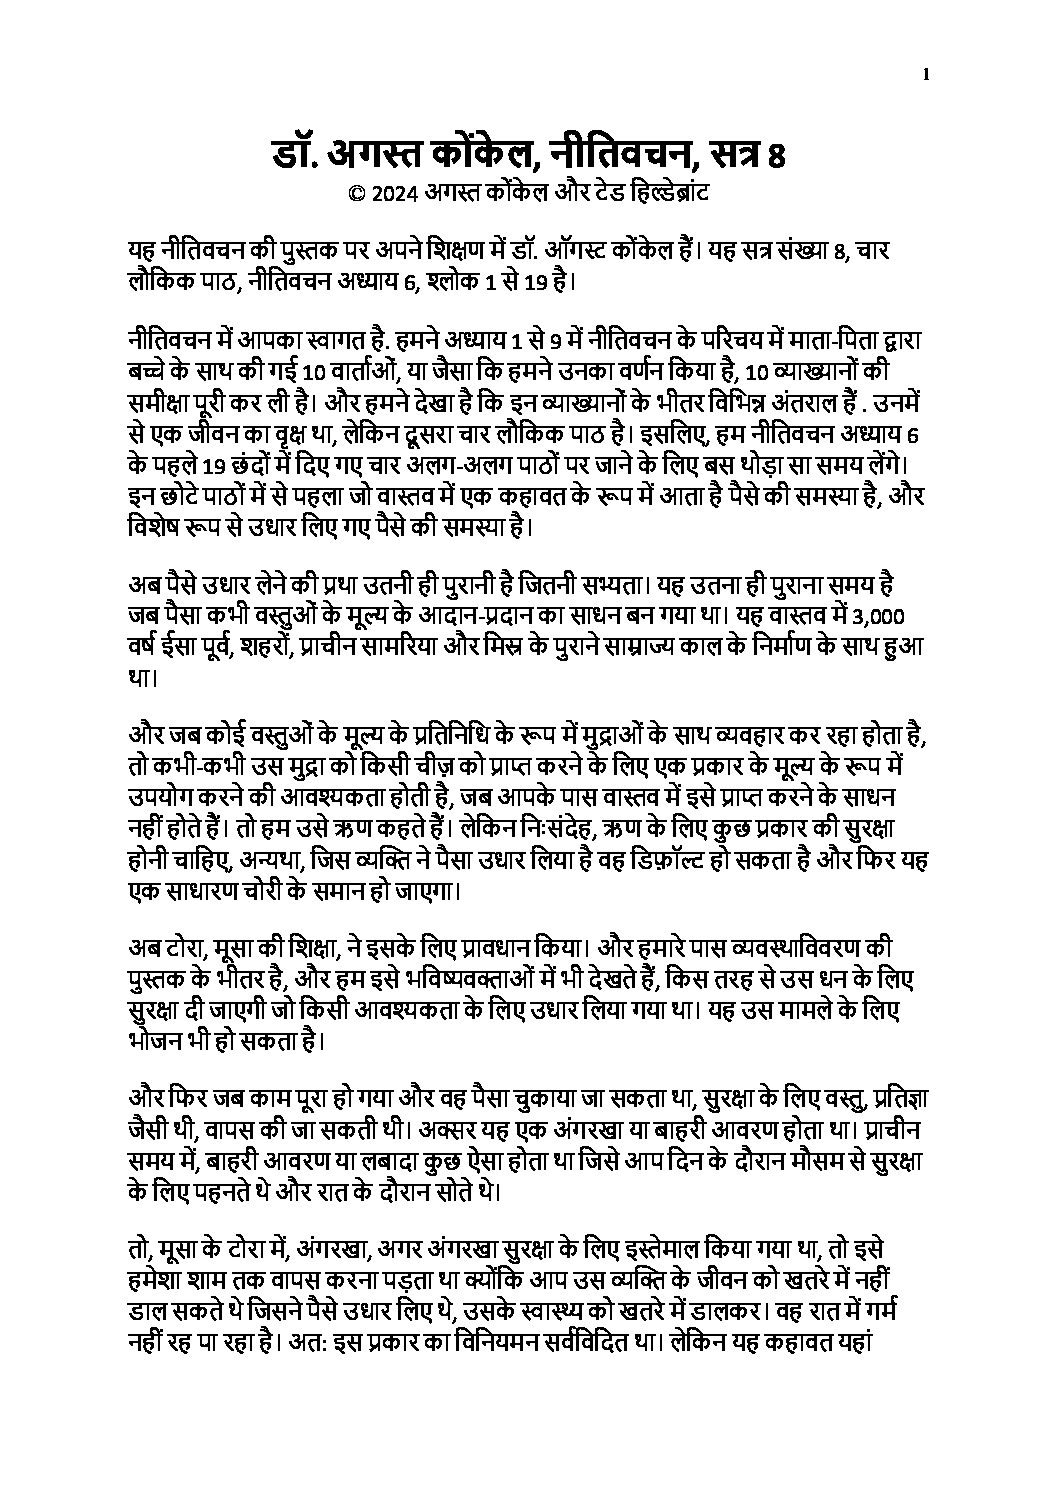 1
डॉ. अगस्त कोंकेल, नीतिवचन, सत्र 8
© 2024 अगस्त कोंकेल और टेड हिल्डेब्रांट
यह नीतिवचन की पुस्तक पर अपने शिक्षण में डॉ. ऑगस्ट कोंकेल हैं। यह सत्र संख्या 8, चार
लौकिक पाठ, नीतिवचन अध्याय 6, श्लोक 1 से 19 है।
नीतिवचन में आपका स्वागत है. हमने अध्याय 1 से 9 में नीतिवचन के परिचय में माता-पिता द्वारा
बच्चे के साथ की गई 10 वार्ताओं, या जैसा कि हमने उनका वर्णन किया है, 10 व्याख्यानों की
समीक्षा पूरी कर ली है। और हमने देखा है कि इन व्याख्यानों के भीतर विभिन्न अंतराल हैं . उनमें
से एक जीवन का वृक्ष था, लेकिन दूसरा चार लौकिक पाठ है। इसलिए, हम नीतिवचन अध्याय 6
के पहले 19 छंदों में दिए गए चार अलग-अलग पाठों पर जाने के लिए बस थोड़ा सा समय लेंगे।
इन छोटे पाठों में से पहला जो वास्तव में एक कहावत के रूप में आता है पैसे की समस्या है, और
विशेष रूप से उधार लिए गए पैसे की समस्या है।
अब पैसे उधार लेने की प्रथा उतनी ही पुरानी है जितनी सभ्यता। यह उतना ही पुराना समय है
जब पैसा कभी वस्तुओं के मूल्य के आदान-प्रदान का साधन बन गया था। यह वास्तव में 3,000
वर्ष ईसा पूर्व, शहरों, प्राचीन सामरिया और मिस्र के पुराने साम्राज्य काल के निर्माण के साथ हुआ
था।
और जब कोई वस्तुओं के मूल्य के प्रतिनिधि के रूप में मुद्राओं के साथ व्यवहार कर रहा होता है,
तो कभी-कभी उस मुद्रा को किसी चीज़ को प्राप्त करने के लिए एक प्रकार के मूल्य के रूप में
उपयोग करने की आवश्यकता होती है, जब आपके पास वास्तव में इसे प्राप्त करने के साधन
नहीं होते हैं। तो हम उसे ऋण कहते हैं। लेकिन निःसंदेह, ऋण के लिए कुछ प्रकार की सुरक्षा
होनी चाहिए, अन्यथा, जिस व्यक्ति ने पैसा उधार लिया है वह डिफ़ॉल्ट हो सकता है और फिर यह
एक साधारण चोरी के समान हो जाएगा।
अब टोरा, मूसा की शिक्षा, ने इसके लिए प्रावधान किया। और हमारे पास व्यवस्थाविवरण की
पुस्तक के भीतर है, और हम इसे भविष्यवक्ताओं में भी देखते हैं, किस तरह से उस धन के लिए
सुरक्षा दी जाएगी जो किसी आवश्यकता के लिए उधार लिया गया था। यह उस मामले के लिए
भोजन भी हो सकता है।
और फिर जब काम पूरा हो गया और वह पैसा चुकाया जा सकता था, सुरक्षा के लिए वस्तु, प्रतिज्ञा
जैसी थी, वापस की जा सकती थी। अक्सर यह एक अंगरखा या बाहरी आवरण होता था। प्राचीन
समय में, बाहरी आवरण या लबादा कुछ ऐसा होता था जिसे आप दिन के दौरान मौसम से सुरक्षा
के लिए पहनते थे और रात के दौरान सोते थे।
तो, मूसा के टोरा में, अंगरखा, अगर अंगरखा सुरक्षा के लिए इस्तेमाल किया गया था, तो इसे
हमेशा शाम तक वापस करना पड़ता था क्योंकि आप उस व्यक्ति के जीवन को खतरे में नहीं
डाल सकते थे जिसने पैसे उधार लिए थे, उसके स्वास्थ्य को खतरे में डालकर। वह रात में गर्म
नहीं रह पा रहा है। अत: इस प्रकार का विनियमन सर्वविदित था। लेकिन यह कहावत यहां